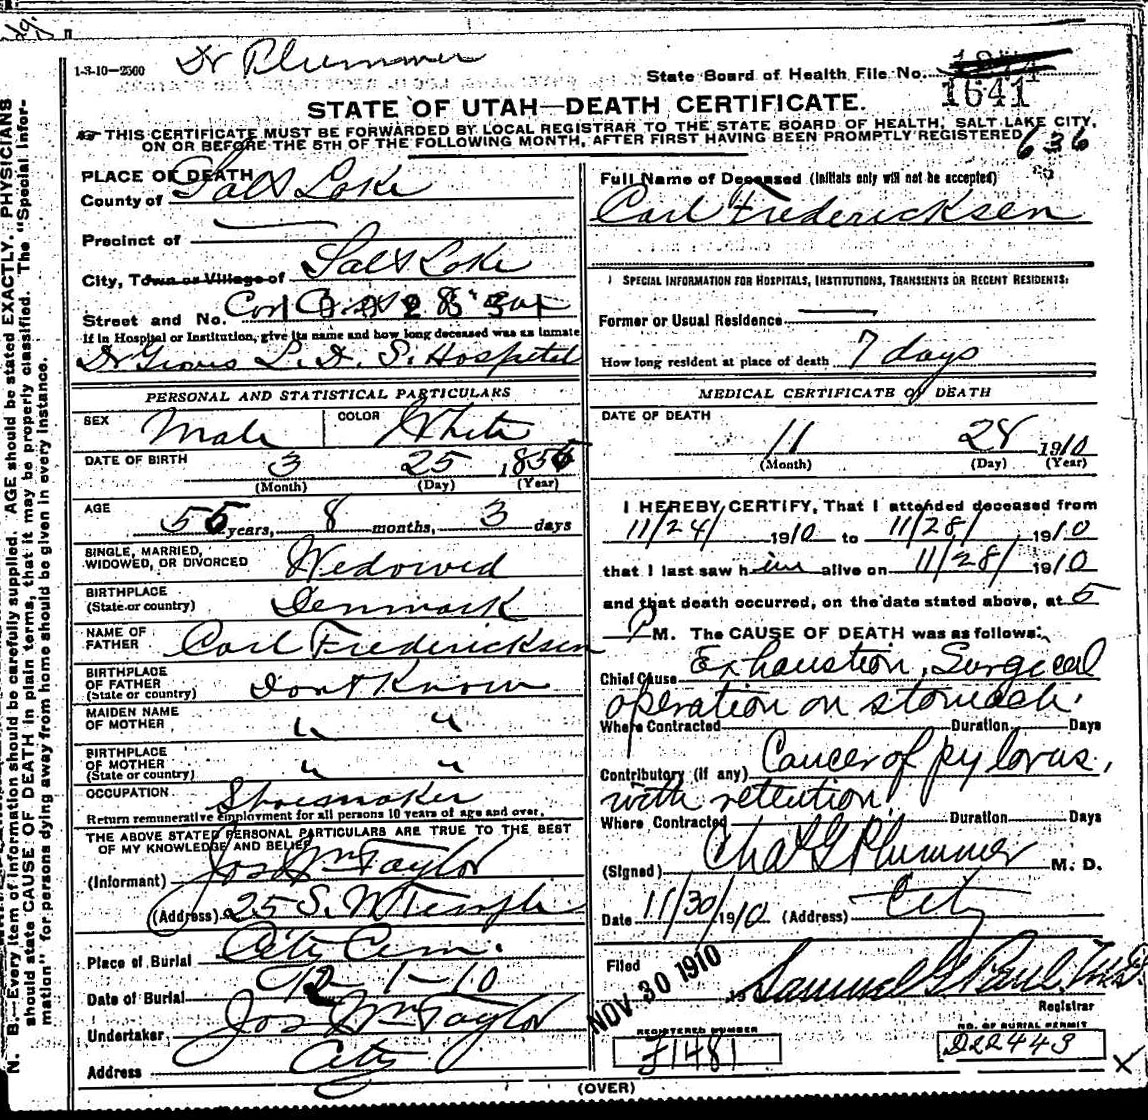 Dr Plummer
1-3-10—2500
State Board of Health File No.
1641
STATE OF UTAH—DEATH CERTIFICATE.
THIS CERTIFICATE MUST BE FORWARDED BY LOCAL REGISTRAR TO THE STATE BOARD OF HEALTH, SALT LAKE CITY,
ON OR BEFORE THE 5TH OF THE FOLLOWING MONTH, AFTER FIRST HAVING BEEN PROMPTLY REGISTERED
636
N. B.—Every item of information should be carefully supplied. AGE should be stated EXACTLY. PHYSICIANS
should state CAUSE OF DEATH in plain terms, that it may be properly classified. The "Special Infor-
mation" for persons dying away from home should be given in every instance.
PLACE OF DEATH
County of Salt Lake
Precinct of
City, Town or Village of Salt Lake
Street and No. Cor
If in Hospital or Institution, give its name and how long deceased was an inmate
Dr Groves L. D. S. Hospital
PERSONAL AND STATISTICAL PARTICULARS
SEX Male COLOR White
DATE OF BIRTH 3 25 1855
(Month) (Day) (Year)
AGE 55 years, 8 months, 3 days
SINGLE, MARRIED,
WIDOWED, OR DIVORCED Widowed
BIRTHPLACE
(State or country) Denmark
NAME OF
FATHER Carl Fredericksen
BIRTHPLACE
OF FATHER
(State or country) Dont Know
MAIDEN NAME
OF MOTHER " "
BIRTHPLACE
OF MOTHER
(State or country) " "
OCCUPATION Shoemaker
Return remunerative employment for all persons 10 years of age and over.
THE ABOVE STATED PERSONAL PARTICULARS ARE TRUE TO THE BEST
OF MY KNOWLEDGE AND BELIEF
(Informant) Jos Wm Taylor
(Address) 25 S. W Temple
Place of Burial City Cem.
Date of Burial 12-1-10
Undertaker Jos Wm Taylor
Address City
Full Name of Deceased (Initials only will not be accepted)
Carl Fredericksen
SPECIAL INFORMATION FOR HOSPITALS, INSTITUTIONS, TRANSIENTS OR RECENT RESIDENTS:
Former or Usual Residence
How long resident at place of death 7 days
MEDICAL CERTIFICATE OF DEATH
DATE OF DEATH
11 28 1910
(Month) (Day) (Year)
I HEREBY CERTIFY, That I attended deceased from
11/24/ 1910 to 11/28/ 1910
that I last saw him alive on 11/28/ 1910
and that death occurred, on the date stated above, at 5
P M. The CAUSE OF DEATH was as follows:
Chief Cause Exhaustion, Surgical
operation on stomach.
Where Contracted Duration Days
Contributory (if any) Cancer of pylorus,
with retention
Where Contracted Duration Days
(Signed) Chas G Plummer M. D.
Date 11/30/1910 (Address) City
Filed NOV 30 1910 19 Samuel G Paul, M.D.
Registrar
REGISTERED NUMBER
F1481
NO. OF BURIAL PERMIT
D22443
(OVER)
X